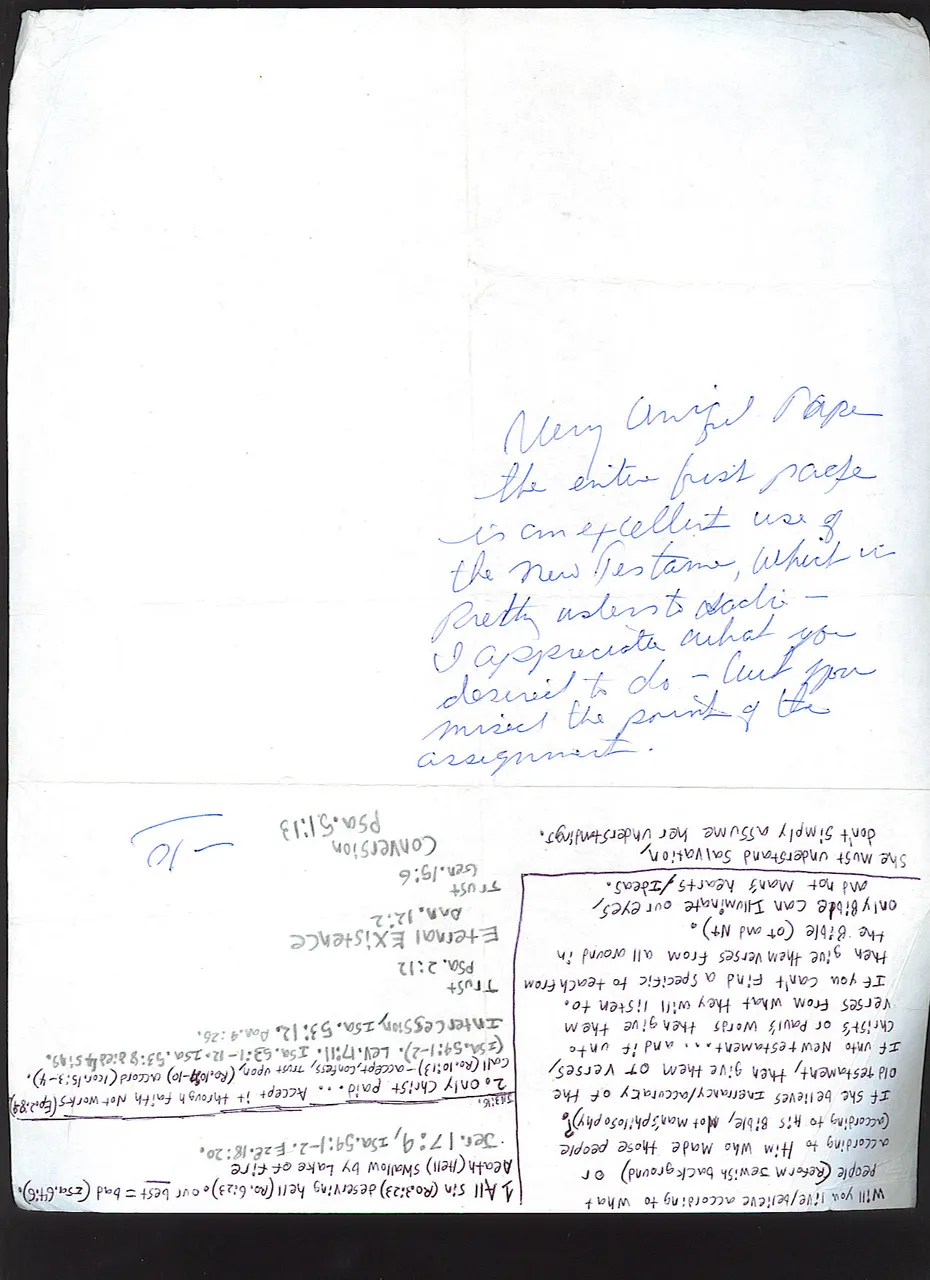 Very Unifed Pape
the entire first page
is an excellent use of
the New Testame, which is
pretty usless to Sadie –
I appreciate what you
desired to do – but you
missed the point of the
assignment.
– 10
Will you live/believe according to what
people (Reform Jewish background) or
according to Him who made those people
(according to his Bible, Not man's philosophy)?
If she believes Inerrancy/accuracy of the
old testament, then give them OT verses,
If unto New testament.... and if unto
Christ's or Paul's words then give them
verses from what they will listen to.
If you can't find a specific to teach from
then give them verses from all around in
the Bible (OT and NT).
only Bible can Illuminate our eyes,
and not man's hearts/Ideas.
She must understand Salvation,
don't simply assume her understandings.
1. All sin (Ro.3:23) deserving hell (Ro.6:23). our best = bad (Isa.64:6).
death (Hell) swallow by Lake of fire
Jer.17:9, Isa.59:1-2. Eze.18:20.
2. Only Christ paid... Accept it through Faith Not works (Ep.2:8-9)
Call (Ro.10:13) - accept, confess, trust upon, (Ro.10:9-10) accord (1cor.15:3-4).
(Isa.59:1-2). Lev.17:11. Isa.53:1-12. Isa.53:8 died 4 sins.
Intercession, Isa.53:12. Dan.9:26.
Trust
Psa.2:12
Eternal Existence
Dan.12:2
Trust
Gen.15:6
Conversion
Psa.51:13